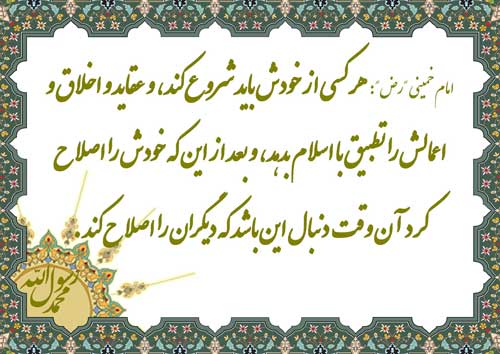 امام خمینی "رض": هر کسی از خودش باید شروع کند، و عقاید و اخلاق و
اعمالش را تطبیق با اسلام بدهد، و بعد از این که خودش را اصلاح
کرد آن وقت دنبال این باشد که دیگران را اصلاح کند.
محمد رسول الله